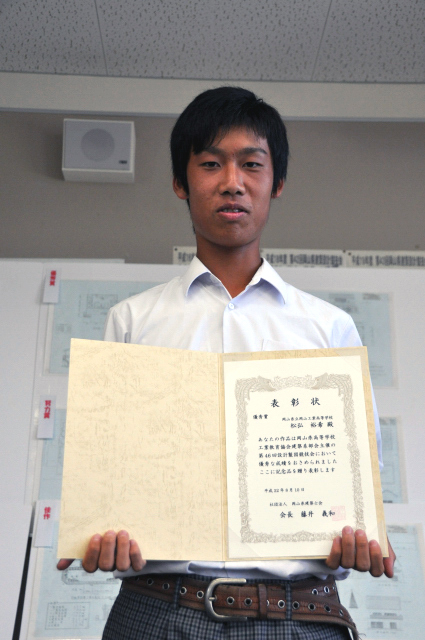 優秀賞
努力賞
佳作
表彰状
優秀賞 岡山県立岡山工業高等学校
松弘 裕希 殿
あなたの作品は岡山県高等学校
工業教育協会建築系部会主催の
第46回設計製図競技会において
優秀な成績をおさめられました
ここに記念品を贈り表彰します
平成22年9月10日
社団法人 岡山県建築士会
会長 藤井 義和